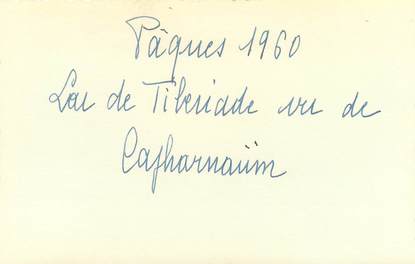 Pâques 1960
Lac de Tibériade vu de
Capharnaüm